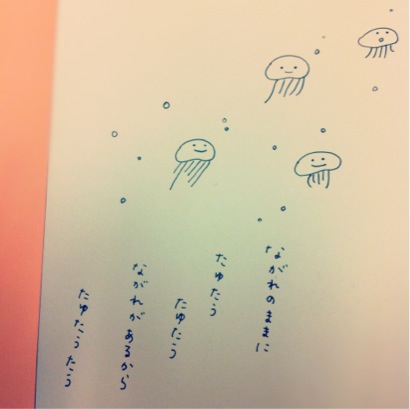 ながれのままに
たゆたう
たゆたう
ながれが あるから
たゆたう たう